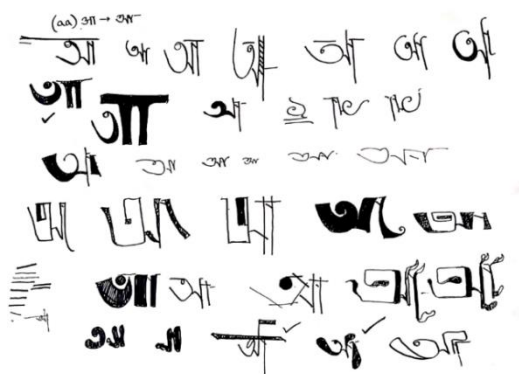 (aa) আ → আ
আ আ আ আ আ আ আ
আ আ আ
আ আ আ আ আ আ
আ আ আ আ আ
আ আ আ আ আ
আ আ আ আ আ